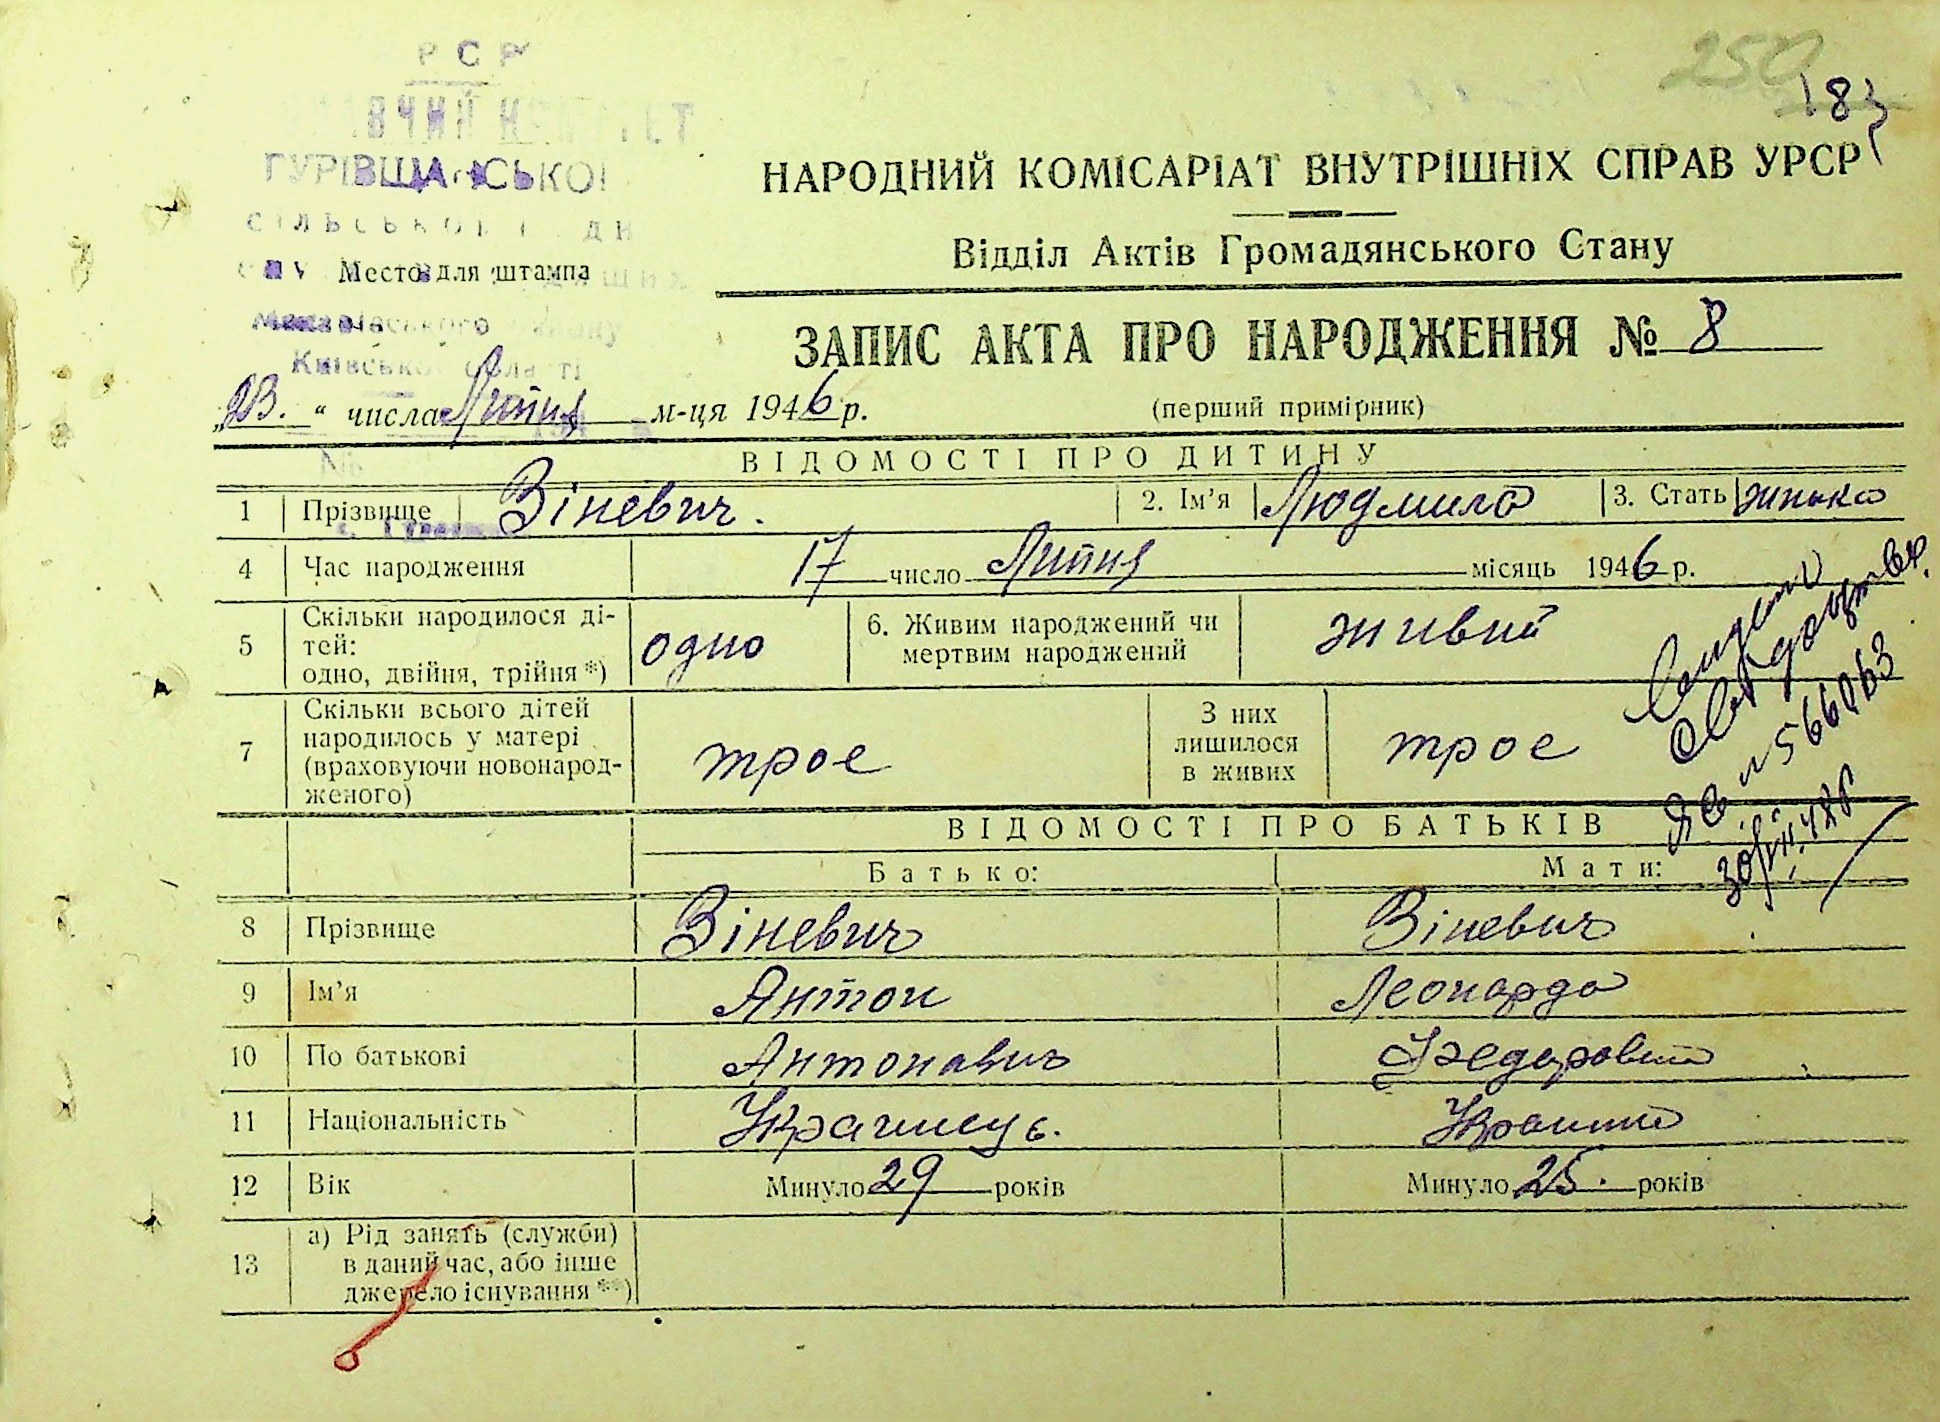 РСР
ГУРІВЩАНСЬКОЇ
Место для штампа
Київської області
250
183
НАРОДНИЙ КОМІСАРІАТ ВНУТРІШНІХ СПРАВ УРСР
Відділ Актів Громадянського Стану
ЗАПИС АКТА ПРО НАРОДЖЕННЯ № 8
„23.“ числа Липня м-ця 1946 р.
(перший примірник)
ВІДОМОСТІ ПРО ДИТИНУ
1 Прізвище Зіневич. 2. Ім’я Людмила 3. Стать жінка
4 Час народження 17 число Липня місяць 1946 р.
5 Скільки народилося ді-
тей:
одно, двійня, трійня *) одно
6. Живим народжений чи
мертвим народжений живий
7 Скільки всього дітей
народилось у матері
(враховуючи новонарод-
женого) трое
З них
лишилося
в живих трое
№ 566063
ВІДОМОСТІ ПРО БАТЬКІВ
Батько: Мати:
8 Прізвище Зіневич Зіневич
9 Ім’я Антон Леонарда
10 По батькові Антонавич
11 Національність
12 Вік Минуло 29 років Минуло 25. років
13 а) Рід занять (служби)
в даний час, або інше
джерело існування **)